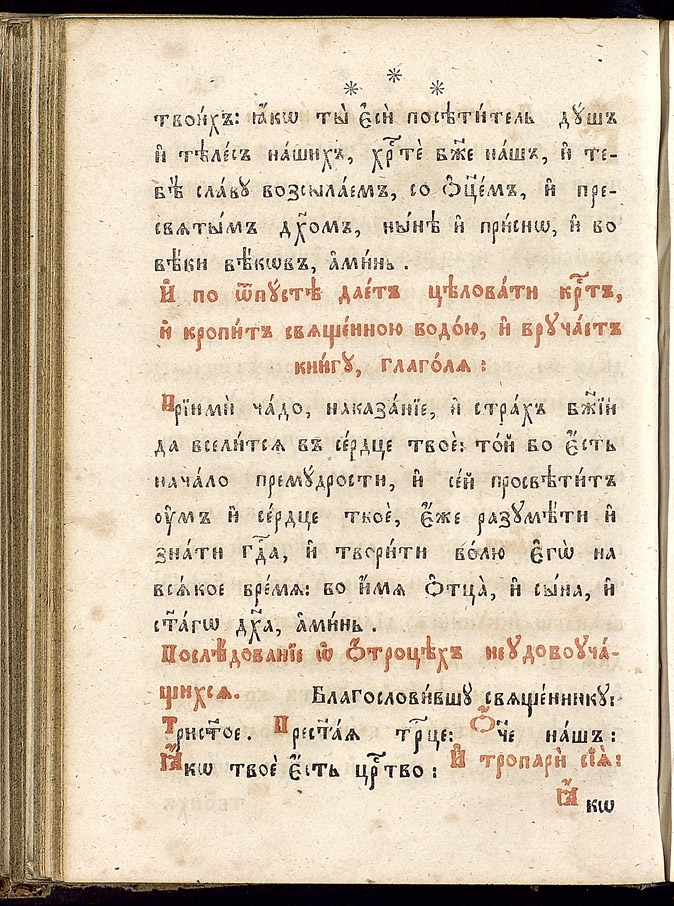 твои́хъ: ꙗ҆́кѡ ты̀ є҆сѝ посѣти́тель дꙋ́шъ
и҆ тѣле́съ на́шихъ, хрⷭ҇тѐ бж҃е на́шъ, и҆ те-
бѣ̀ сла́вꙋ возсыла́емъ, со ѻ҆ц҃е́мъ, и҆ пре-
свѧты́мъ дх҃омъ, ны́нѣ и҆ при́снѡ, и҆ во
вѣ́ки вѣкѡ́въ, а҆ми́нь.
И҆ по ѿпꙋ́стѣ дае́тъ цѣлова́ти крⷭ҇тъ,
и҆ кропи́тъ свѧще́нною водо́ю, и҆ врꙋча́етъ
кни́гꙋ, глаго́лѧ:
Прїимѝ ча́до, наказа́нїе, и҆ стра́хъ бж҃їй
да всели́тсѧ въ се́рдце твоѐ: то́й бо є҆́сть
нача́ло премꙋ́дрости, и҆ се́й просвѣти́тъ
ᲂу҆́мъ и҆ се́рдце твоѐ, є҆́же разꙋмѣ́ти и҆
зна́ти гдⷭ҇а, и҆ твори́ти во́лю є҆гѡ̀ на
всѧ́кое вре́мѧ: во и҆́мѧ ѻ҆тца̀, и҆ сы́на, и҆
ст҃а́гѡ дх҃а, а҆ми́нь.
Послѣ́дованїе ѡ҆ ѻ҆́троцѣхъ неꙋдовоꙋча́-
щихсѧ. Благослови́вшꙋ свѧще́нникꙋ:
Трист҃ое. Прест҃а́ѧ трⷪ҇це: Ѻ҆́ч҃е на́шъ:
Ꙗ҆́кѡ твоѐ є҆́сть црⷭ҇тво: И҆ тропарѝ сїѧ̑:
Ꙗ҆́кѡ